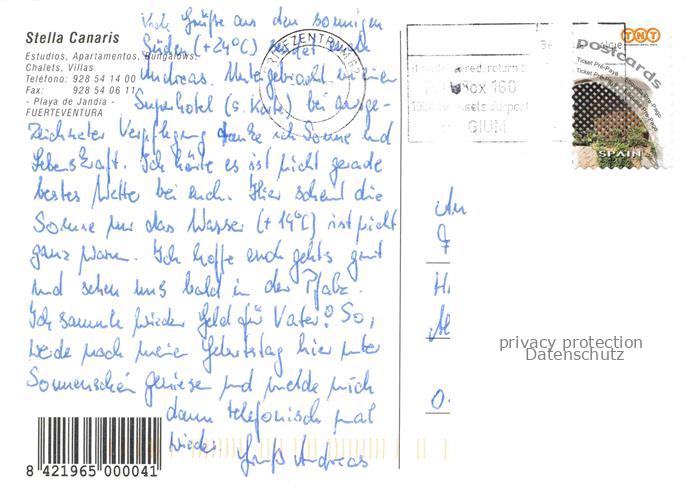 Stella Canaris
Estudios, Apartamentos, Bungalows,
Chalets, Villas
Teléfono: 928 54 14 00
Fax: 928 54 06 11
- Playa de Jandia -
FUERTEVENTURA
Viele Grüße aus dem sonnigen
Süden (+24°C) sendet euch
Andreas. Untergebracht in einem
Superhotel (s. Karte) bei ausge-
zeichneter Verpflegung tanke ich Sonne und
Lebenskraft. Ich hörte es ist nicht gerade
bestes Wetter bei euch. Hier scheint die
Sonne nur das Wasser (+19°C) ist nicht
ganz warm. Ich hoffe euch gehts gut
und sehen uns bald in der Pfalz.
Ich sammle wieder Geld für Vater? So,
werde noch meinen Geburtstag hier unter
Sonnenschein geniesen und melde mich
dann telefonisch mal
wieder. Gruß Andreas
8 421965 000041
BRIEFZENTRUM 67
return
Box 160
Airport
GIUM
TNT
Postcards
Ticket Pré-Payé
SPAIN
An
F
H
O
privacy protection
Datenschutz